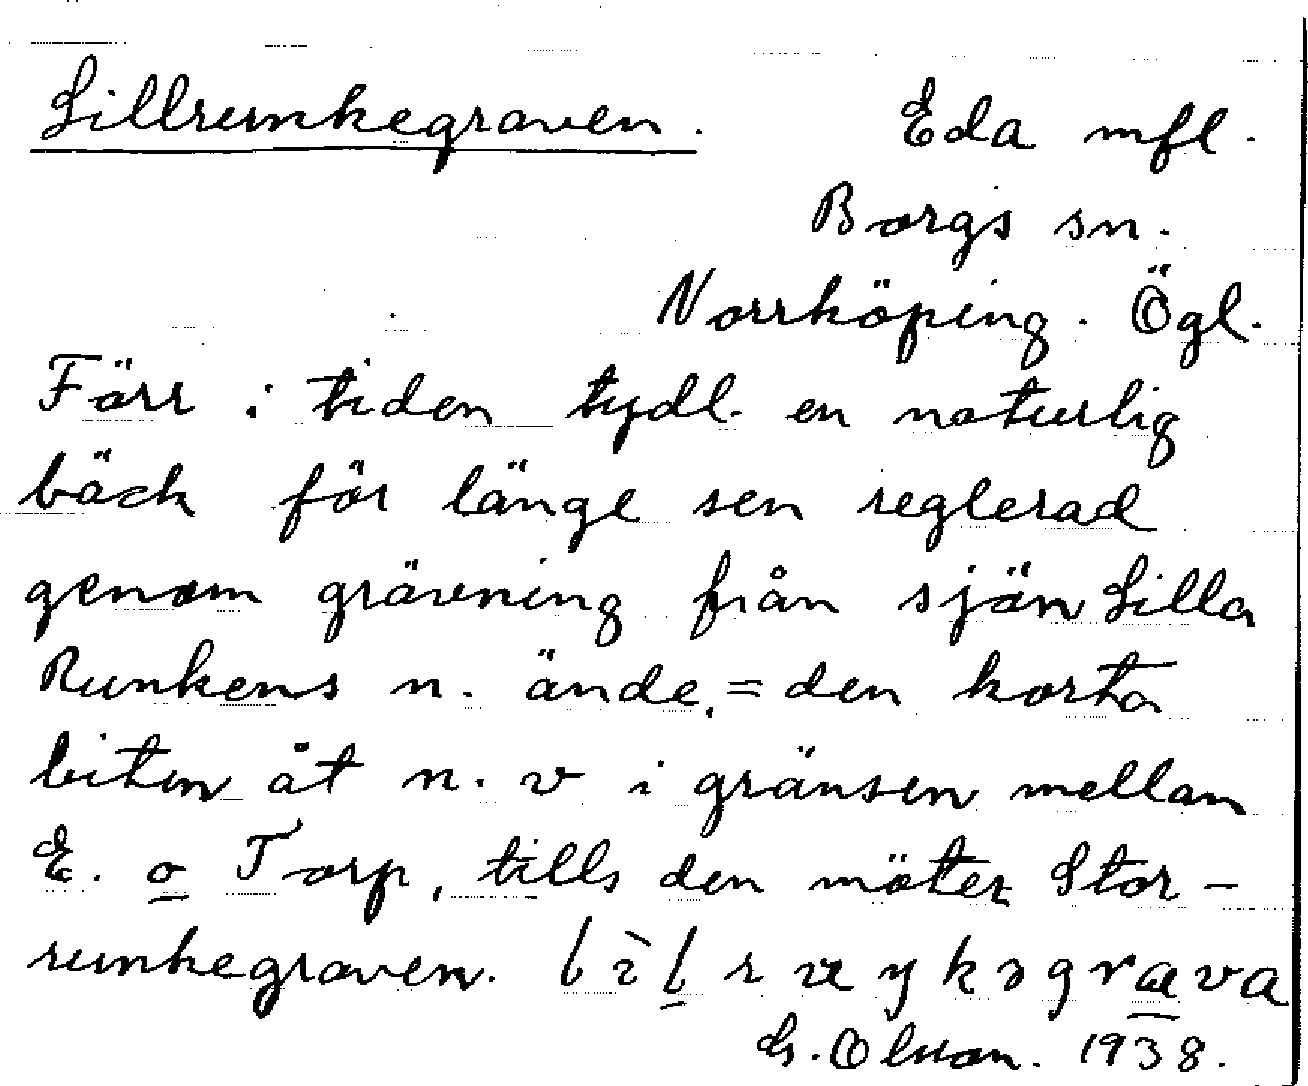 Lillrunkegraven. Eda mfl.
Borgs sn.
Norrköping. Ögl.
Förr i tiden tydl. en naturlig
bäck för länge sen reglerad
genom grävning från sjön Lilla
Runkens n. ände, = den korta
biten åt n. v i gränsen mellan
E. o Torp, tills den möter Stor-
runkegraven.
G. Olson. 1938.